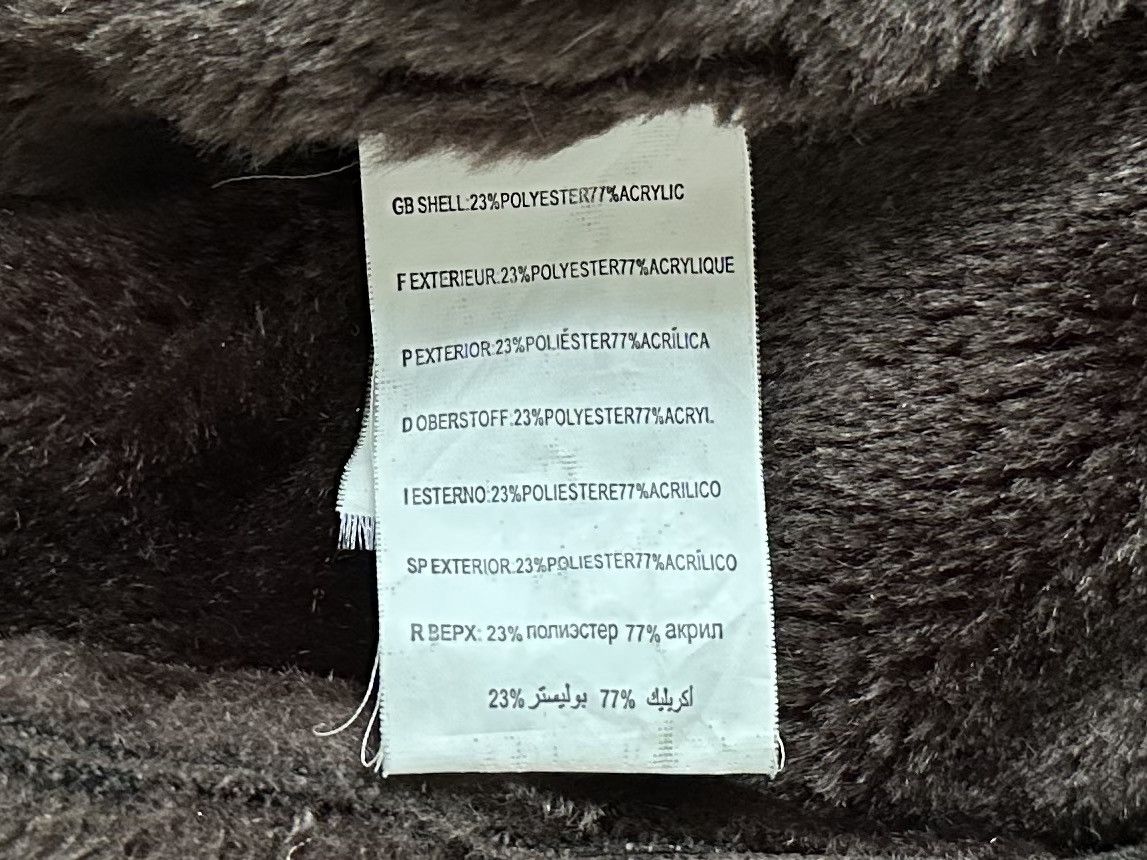 GB SHELL:23%POLYESTER77%ACRYLIC
F EXTERIEUR:23%POLYESTER77%ACRYLIQUE
P EXTERIOR:23%POLIÉSTER77%ACRÍLICA
D OBERSTOFF:23%POLYESTER77%ACRYL
I ESTERNO:23%POLIESTERE77%ACRILICO
SP EXTERIOR:23%POLIESTER77%ACRÍLICO
R ВЕРХ: 23% полиэстер 77% акрил
اكريليك 77% بوليستر 23%